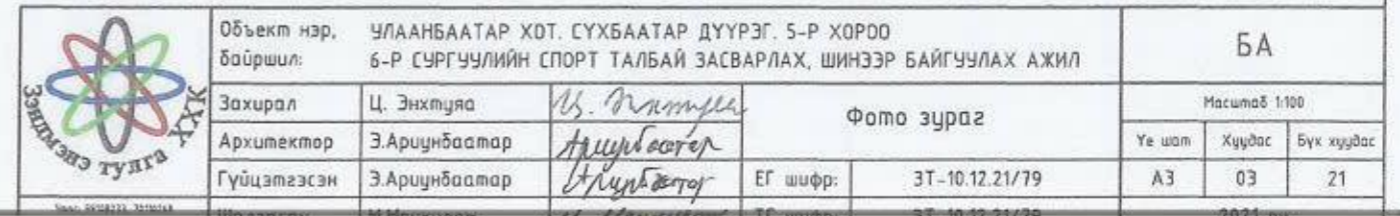 Зэндмэнэ тулга ХХК
Объект нэр, байршил:
УЛААНБААТАР ХОТ. СҮХБААТАР ДҮҮРЭГ. 5-Р ХОРОО
6-Р СУРГУУЛИЙН СПОРТ ТАЛБАЙ ЗАСВАРЛАХ, ШИНЭЭР БАЙГУУЛАХ АЖИЛ
БА
Захирал Ц. Энхтуяа Ц. Энхтуяа
Фото зураг
Масштаб 1:100
Архитектор Э.Ариунбаатар Ариунбаатар
Үе шат Хуудас Бүх хуудас
Гүйцэтгэсэн Э.Ариунбаатар Ариунбаатар ЕГ шифр: ЗТ-10.12.21/79 А3 03 21